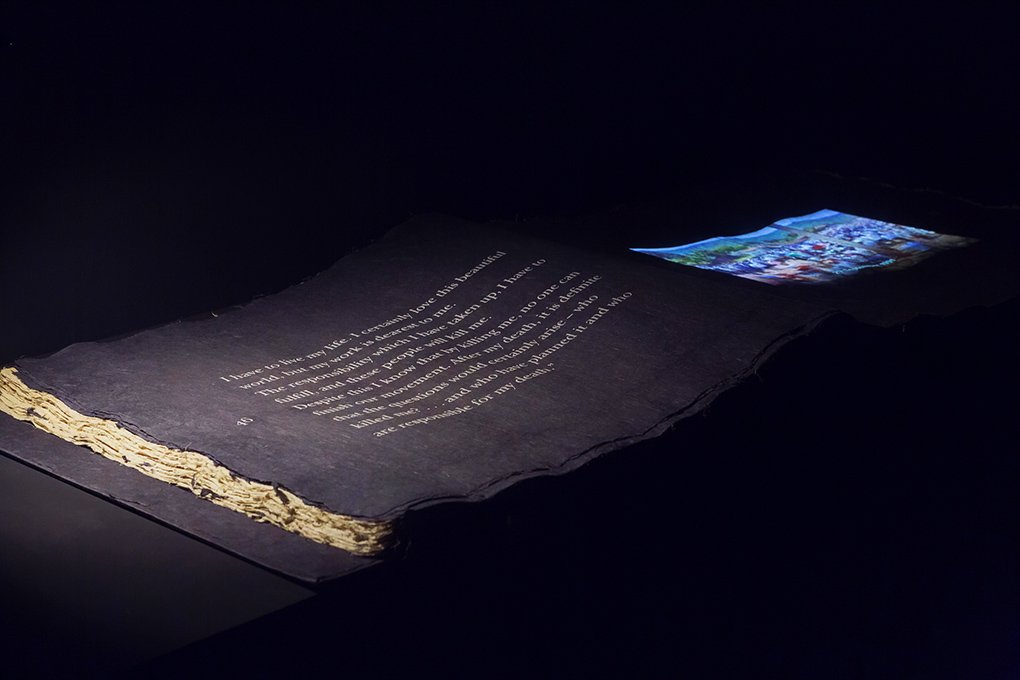 I have to live my life. I certainly love this beautiful
world, but my work is dearest to me.
The responsibility which I have taken up, I have to
fulfill, and these people will kill me.
Despite this I know that by killing me, no one can
finish our movement. After my death, it is definite
that the questions would certainly arise – who
killed me? . . . and who have planned it and who
are responsible for my death.”
40